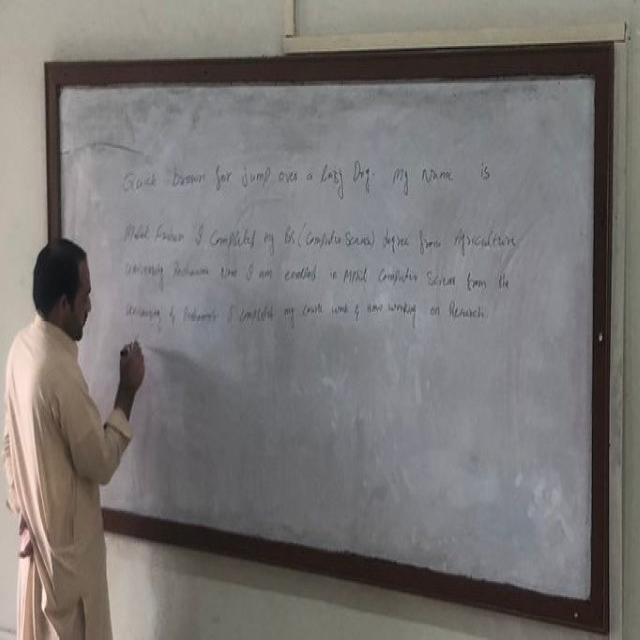 Quick brown fox jump over a lazy Dog. my name is
I completed my BS (Computer Science) degree from Agriculture
University Peshawar Now I am enrolled in MPhil Computer Science from the
University of Peshawar I completed my course work & now working on Research